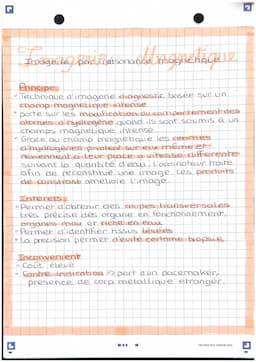 Imagerie Magnetique
Imagerie par résonance magnétique
Principe:
• Technique d'imagerie diagnostic basée sur un
champ magnétique intense
• porte sur les modification du comportement des
atomes d'hydrogène quand ils sont soumis à un
champs magnétique intense
• Grace au champ magnétique les atomes
d'hydrogènes pivotent sur eux même et
reviennent à leur place a vitesse differente
suivant la quantité d'eau. L'ordinateur traite
afin de reconstitué une image. Les produits
de contraste améliore l'image.
Interets:
• Permet d'obtenir des coupes transversales
très précise des organe en fonctionnement,
organes mou et riche en eau
• Permet d'identifier tissus lésées
• la précision permet d'évité certaine biopsie
Inconvenient
• Coût élevé
• Contre indication port d'un pacemaker,
presence de corp metallique etranger.